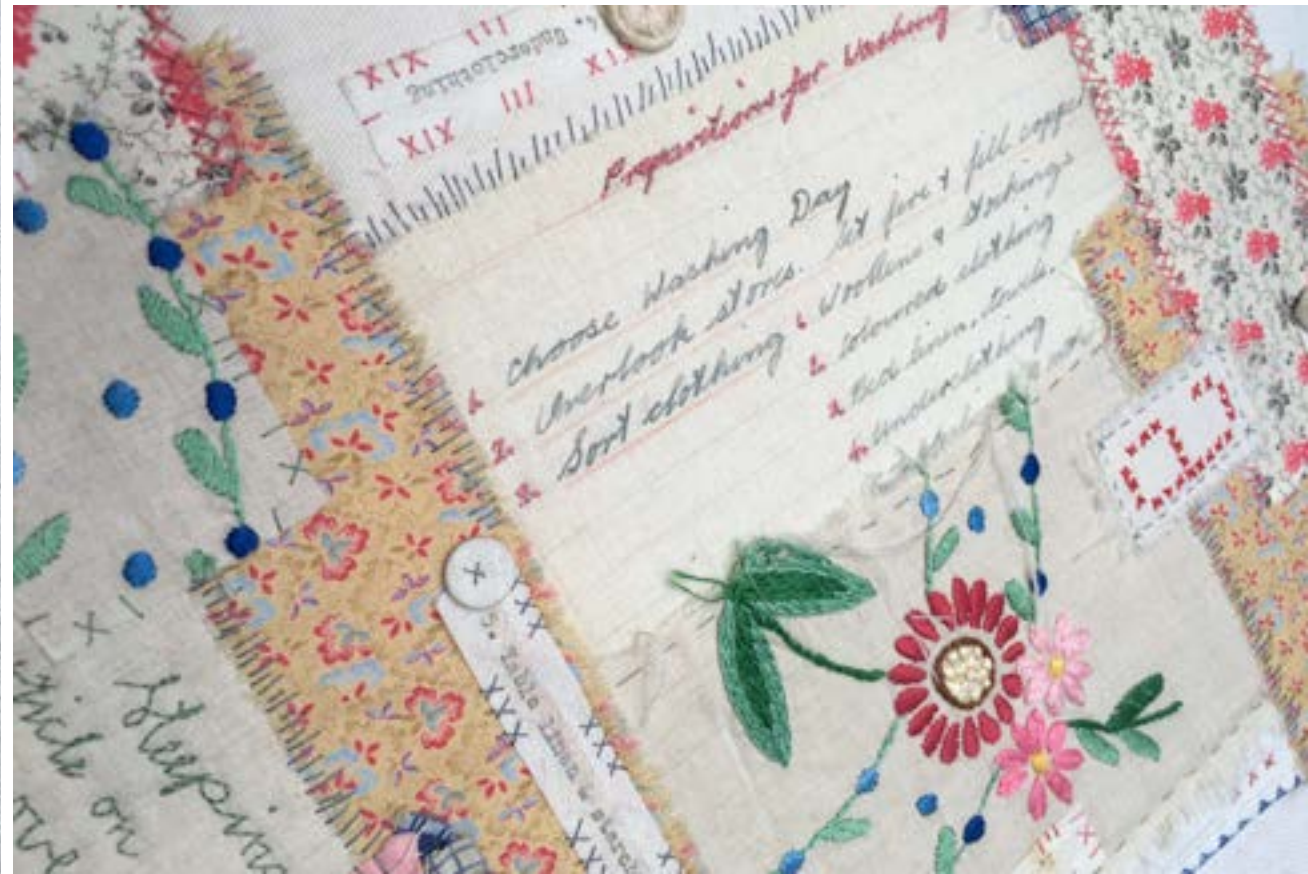 XIX III
6. Underclothing
XIX III XIX
Preparations for Washing
1. Choose Washing Day
2. Overlook stores. Set fire & fill copper
3. Sort clothing
1. Woollens & stockings
2. Coloured clothing
3. Bed linen, towels.
4. Underclothing
2
5. Table linen & starch
XX
XXX
XXX
XXX
Steeping
on